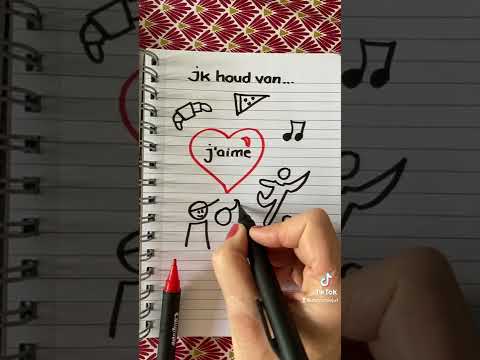 ik houd van...
j'aime
TikTok